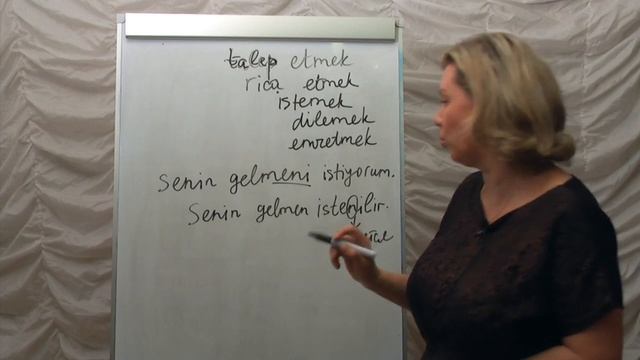 talep etmek
rica etmek
istemek
dilemek
emretmek
Senin gelmeni istiyorum.
Senin gelmen istenilir.